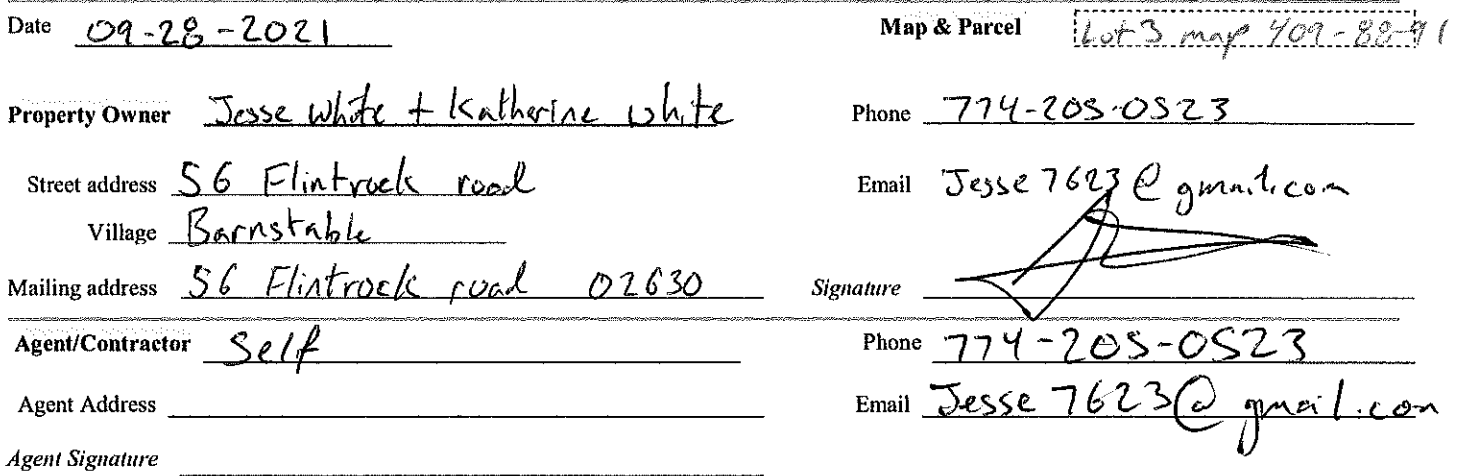 Date 09-28-2021 Map & Parcel Lot 3 map 409-88-91
Property Owner Jesse White + Katherine white Phone 774-205-0523
Street address 56 Flintrock road Email Jesse7623@gmail.com
Village Barnstable
Mailing address 56 Flintrock road 02630 Signature
Agent/Contractor Self Phone 774-205-0523
Agent Address Email Jesse7623@gmail.com
Agent Signature